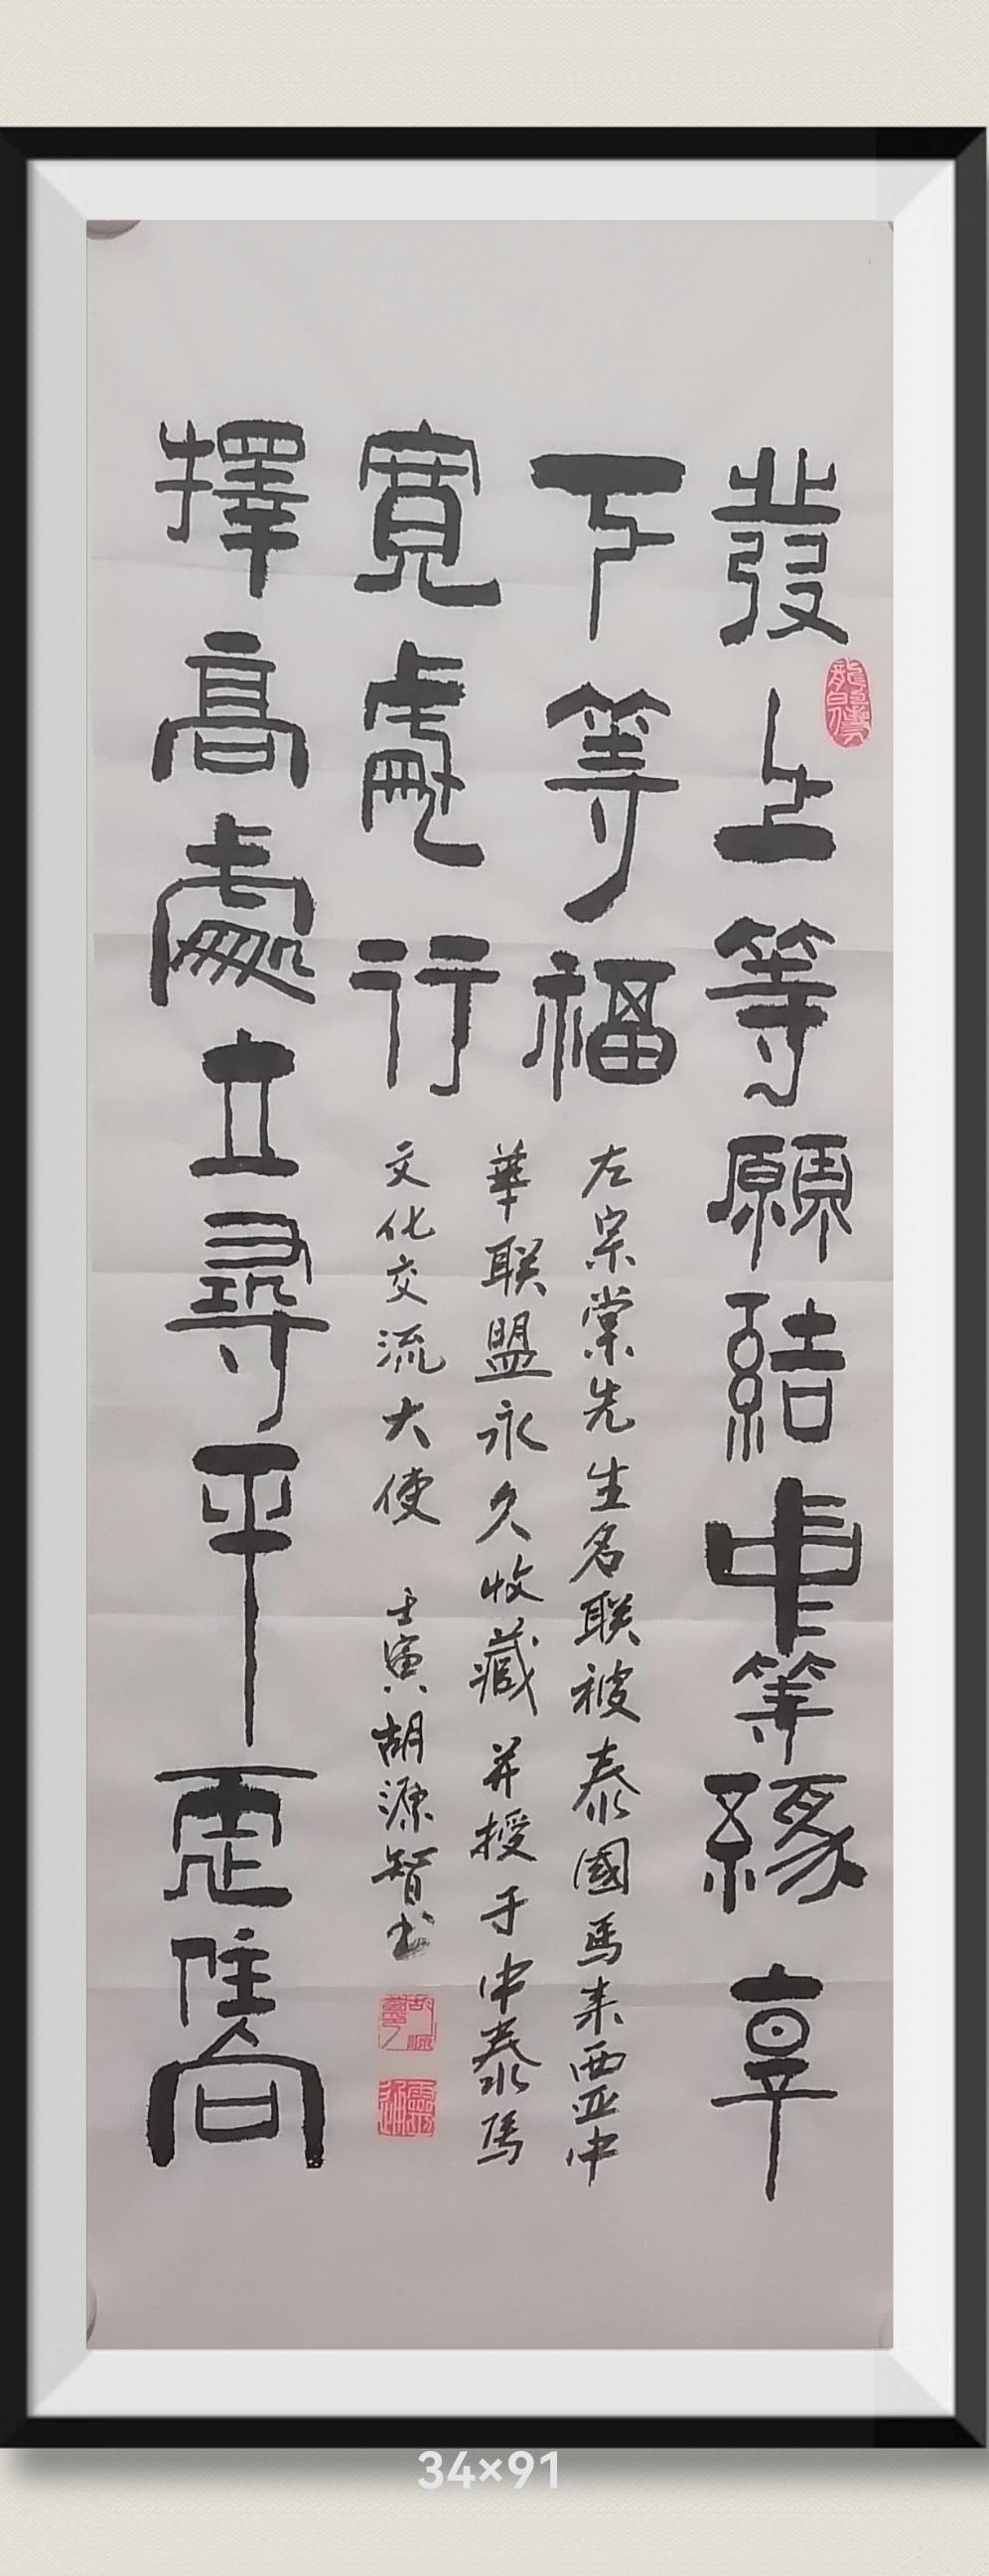 發上等願結中等緣享
下等福
擇高處立尋平處住向
寬處行
左宗棠先生名联被泰國馬来西亚中
華联盟永久收藏并授于中泰馬
文化交流大使 壬寅胡源智书
34×91